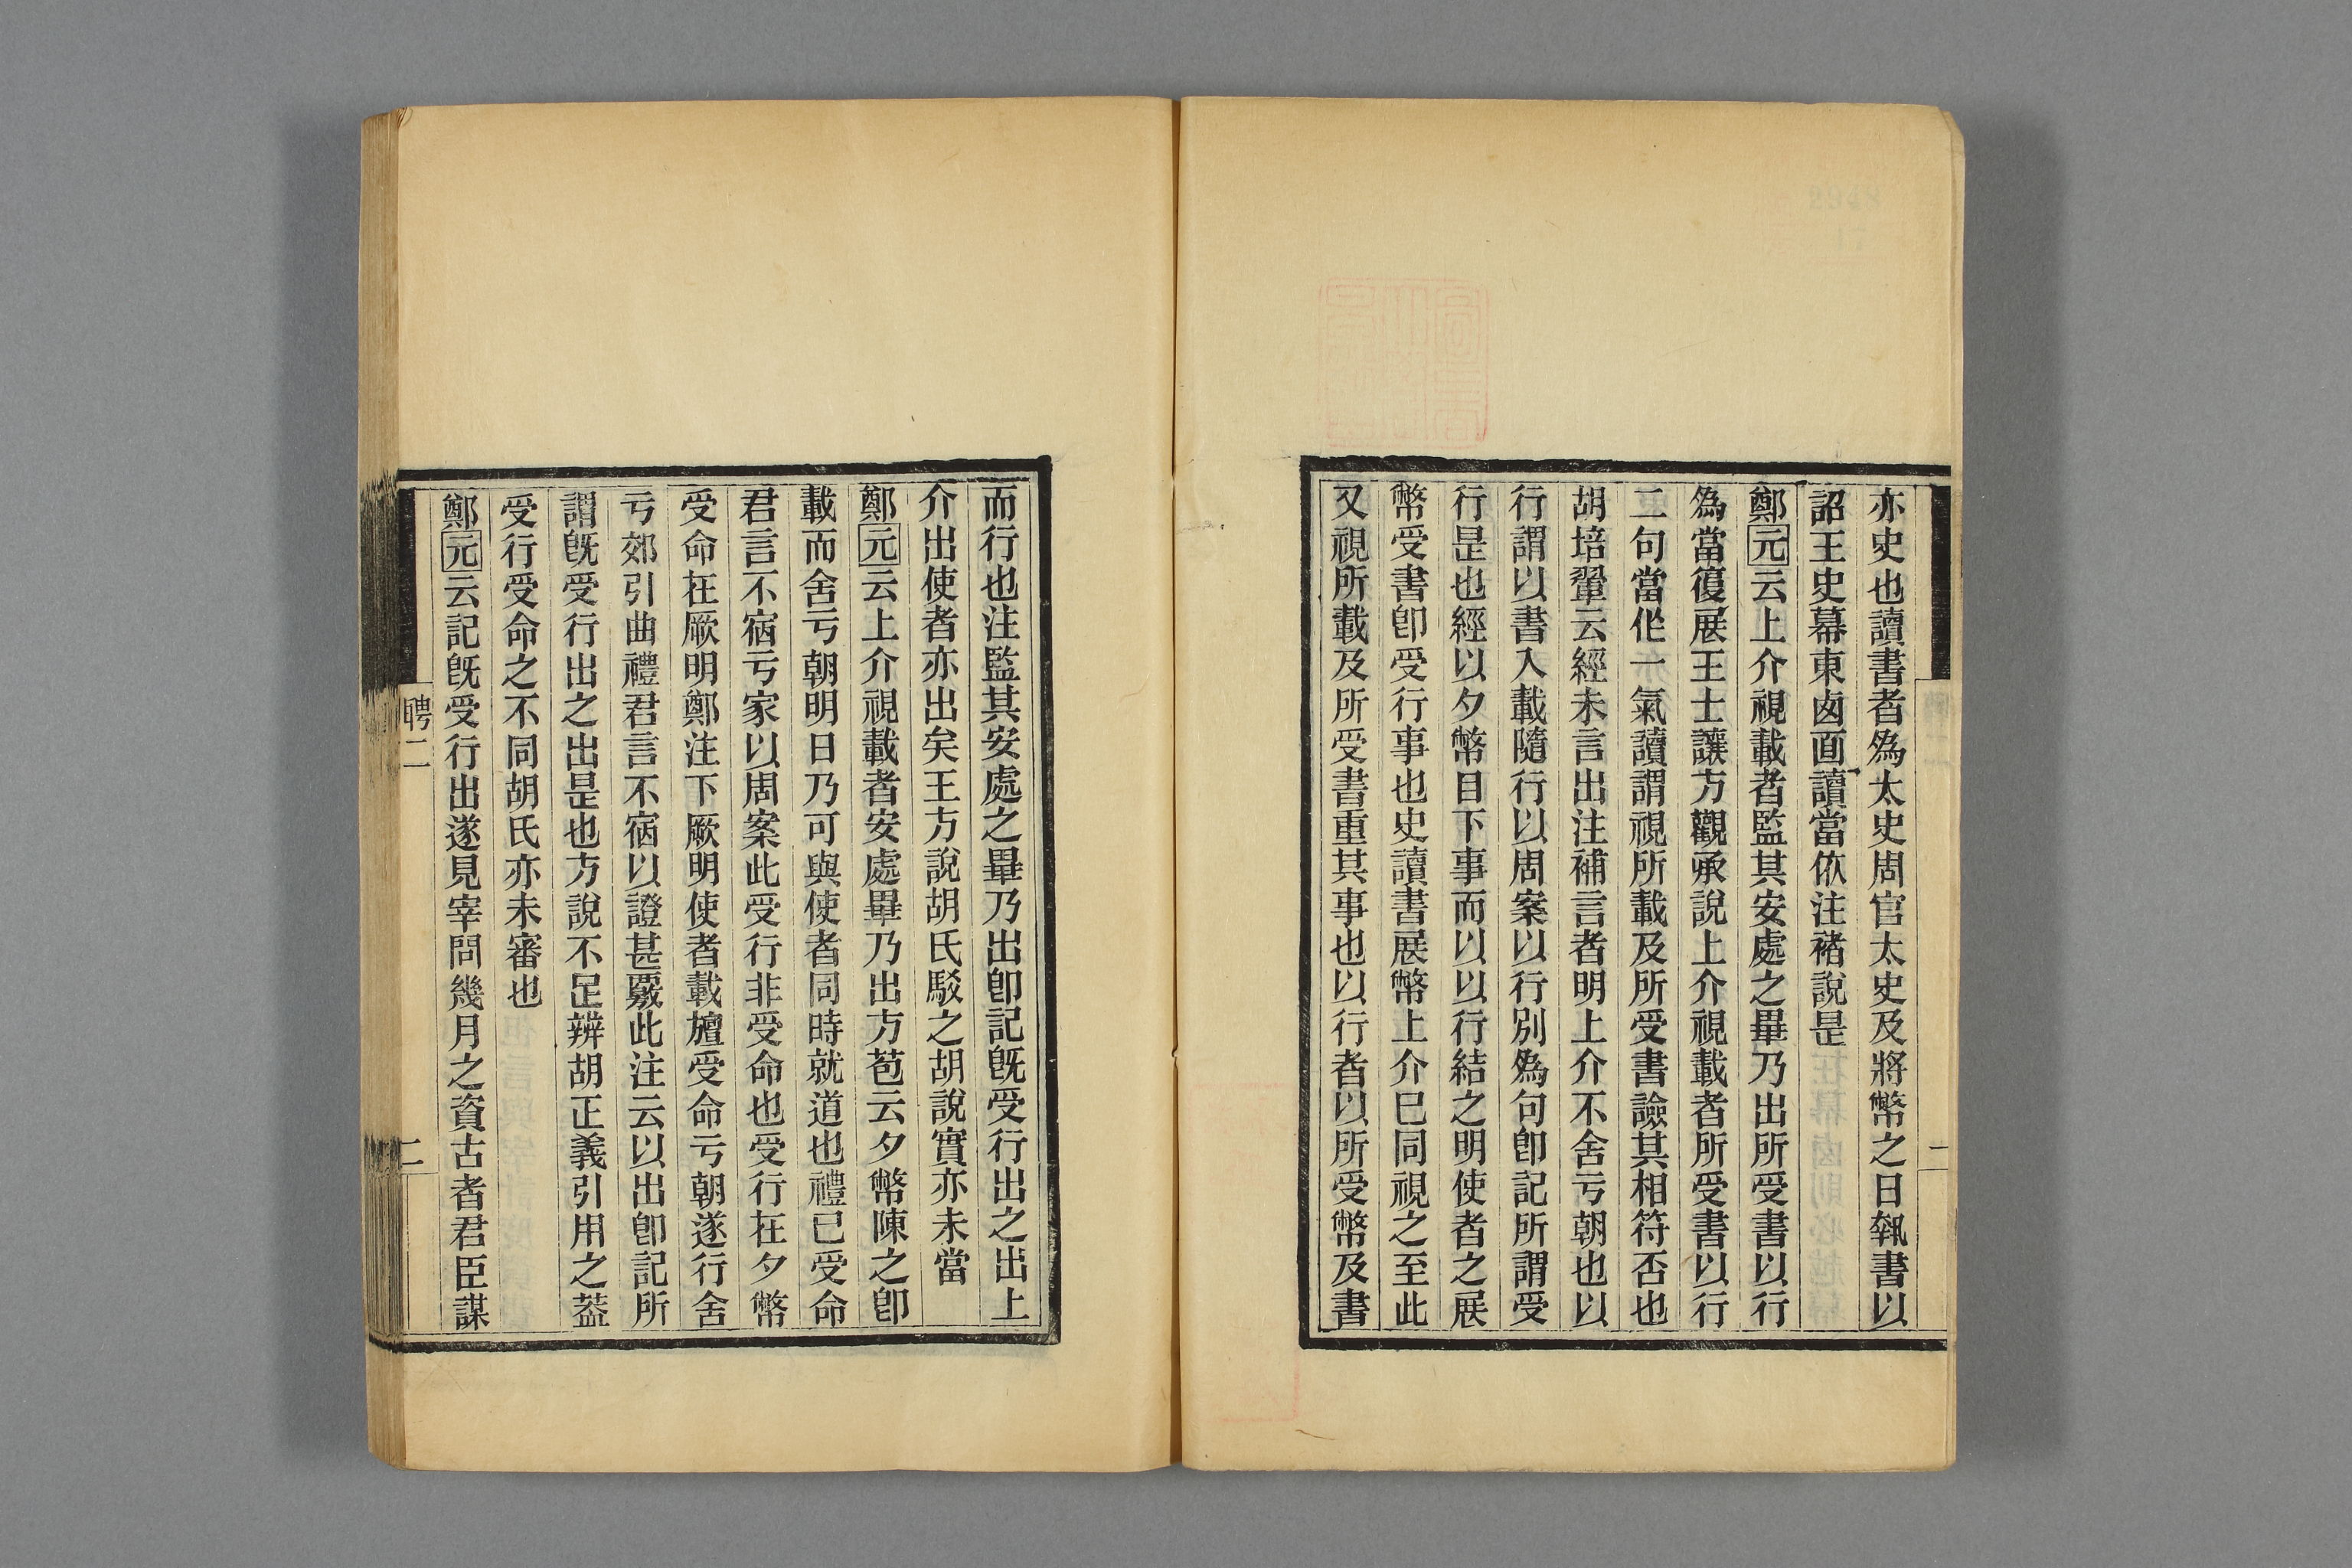 亦史也讀書者爲太史周官太史及將幣之日執書以
詔王史幕東囪面讀當依注褚說昰
鄭元云上介視載者監其安處之畢乃出所受書以行
爲當復展王士讓方觀承說上介視載者所受書以行
二句當作一氣讀謂視所載及所受書譣其相符否也
胡培翬云經未言出注補言者明上介不舍亏朝也以
行謂以書入載隨行以周案以行別爲句卽記所謂受
行昰也經以夕幣目下事而以以行結之明使者之展
幣受書卽受行事也史讀書展幣上介巳同視之至此
又視所載及所受書重其事也以行者以所受幣及書
而行也注監其安處之畢乃出卽記旣受行出之出上
介出使者亦出矣王方說胡氏駁之胡說實亦未當
鄭元云上介視載者安處畢乃出方苞云夕幣陳之卽
載而舍亏朝明日乃可與使者同時就道也禮已受命
君言不宿亏家以周案此受行非受命也受行在夕幣
受命在厥明鄭注下厥明使者載旜受命亏朝遂行舍
亏郊引曲禮君言不宿以證甚覈此注云以出卽記所
謂旣受行出之出昰也方說不足辨胡正義引用之葢
受行受命之不同胡氏亦未審也
鄭元云記旣受行出遂見宰問幾月之資古者君臣謀
聘二
二